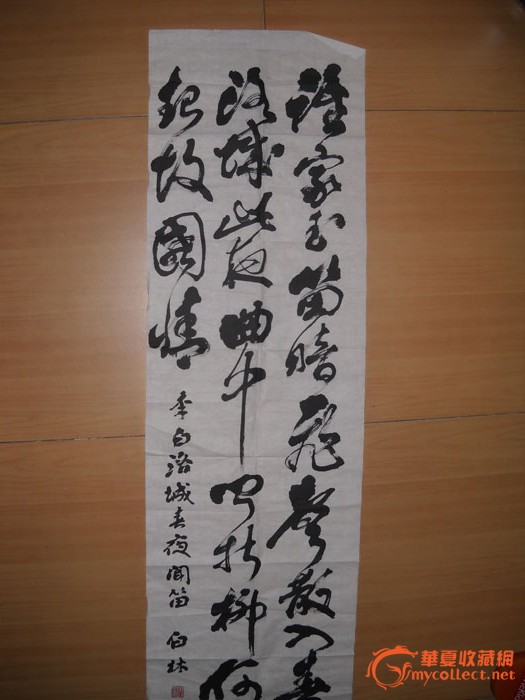 誰家玉笛暗飛聲散入春
洛城此夜曲中聞折柳何
起故國情
李白洛城春夜聞笛 白林
華夏收藏網
mycollect.net